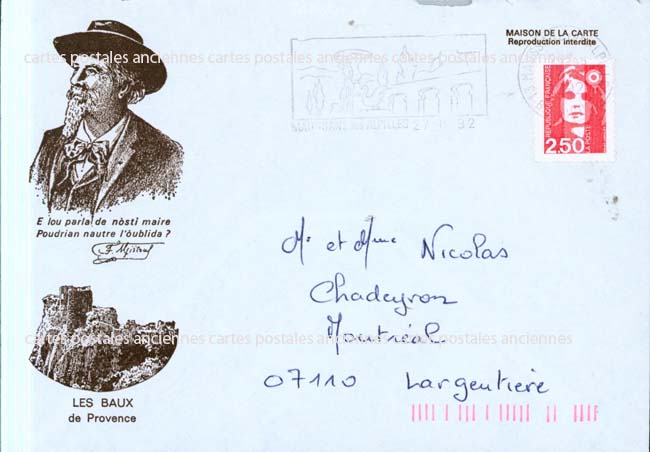 MAISON DE LA CARTE
Reproduction interdite
cartes postales anciennes cartes postales anciennes cartes postales anciennes
REPUBLIQUE FRANÇAISE
2,50
LA POSTE
E lou parla de nòsti maire
Poudrian nautre l'óublida ?
F. Mistral
Mr et Mme Nicolas
Chadeyron
Montréal
07110 Largentière
cartes postales anciennes cartes postales anciennes
LES BAUX
de Provence